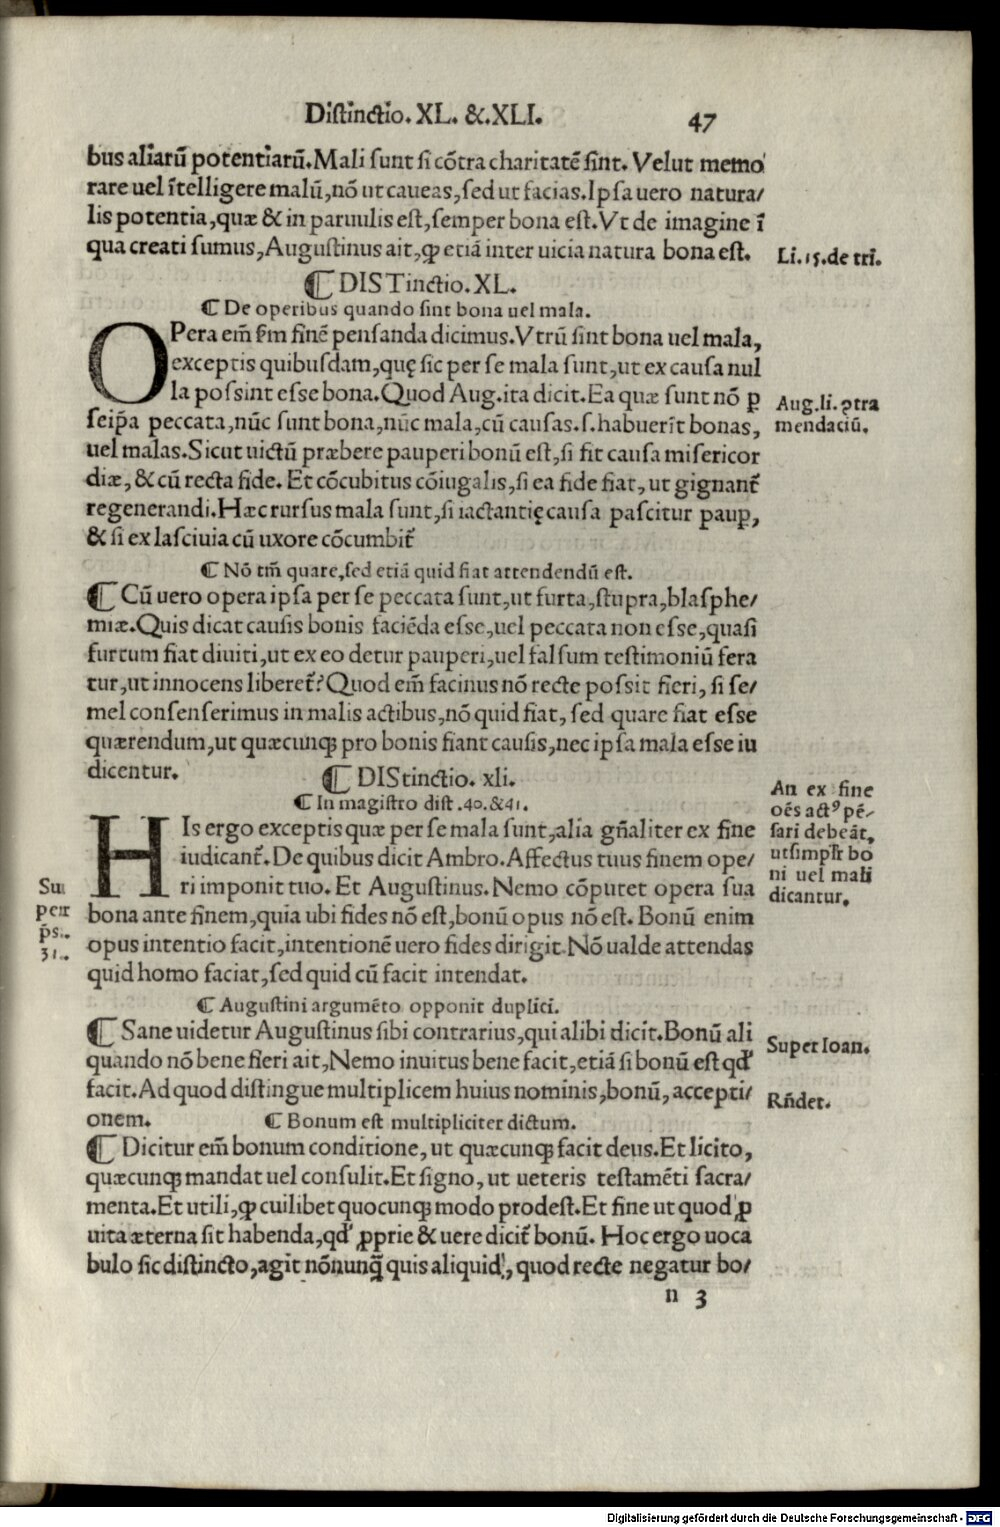 Distinctio. XL. &. XLI. 47
bus aliarū potentiarū. Mali sunt si cōtra charitatē sint. Velut memo
rare uel ītelligere malū, nō ut caueas, sed ut facias. Ipsa uero natura/
lis potentia, quæ & in paruulis est, semper bona est. Vt de imagine ī
qua creati sumus, Augustinus ait, ꝙ etiā inter uicia natura bona est.
Li. 15. de tri.
⸿ DISTinctio. XL.
⸿ De operibus quando sint bona uel mala.
OPera em̄ ẜm finē pensanda dicimus. Vtrū sint bona uel mala,
exceptis quibusdam, quę sic per se mala sunt, ut ex causa nul
la possint esse bona. Quod Aug. ita dicit. Ea quæ sunt nō ꝑ
seip̄a peccata, nūc sunt bona, nūc mala, cū causas. s. habuerīt bonas,
uel malas. Sicut uictū præbere pauperi bonū est, si fit causa misericor
diæ, & cū recta fide. Et cōcubitus cōiugalis, si ea fide fiat, ut gignant̄
regenerandi. Hæc rursus mala sunt, si iactantię causa pascitur paup,
& si ex lasciuia cū uxore cōcumbit̄
Aug. li. ꝯtra
mendaciū.
⸿ Nō tm̄ quare, sed etiā quid fiat attendendū est.
⸿ Cū uero opera ipsa per se peccata sunt, ut furta, stupra, blasphe/
miæ. Quis dicat causis bonis faciēda esse, uel peccata non esse, quasi
furtum fiat diuiti, ut ex eo detur pauperi, uel falsum testimoniū fera
tur, ut innocens liberet̄? Quod em̄ facinus nō recte possit fieri, si se/
mel consenserimus in malis actibus, nō quid fiat, sed quare fiat esse
quærendum, ut quæcunqꝫ pro bonis fiant causis, nec ipsa mala esse iu
dicentur.
⸿ DIStinctio. xli.
⸿ In magistro dist. 40. & 41.
HIs ergo exceptis quæ per se mala sunt, alia gn̄aliter ex fine
iudicant̄. De quibus dicit Ambro. Affectus tuus finem ope/
ri imponit tuo. Et Augustinus. Nemo cōputet opera sua
bona ante finem, quia ubi fides nō est, bonū opus nō est. Bonū enim
opus intentio facit, intentionē uero fides dirigit. Nō ualde attendas
quid homo faciat, sed quid cū facit intendat.
An ex fine
oēs actꝰ pē/
sari debeāt,
ut simpl'r bo
ni uel mali
dicantur.
Su
per
p̄s.
31.
⸿ Augustini argumēto opponit duplici.
⸿ Sane uidetur Augustinus sibi contrarius, qui alibi dicit. Bonū ali
quando nō bene fieri ait, Nemo inuitus bene facit, etiā si bonū est qd'
facit. Ad quod distingue multiplicem huius nominis, bonū, accepti/
onem.
Super Ioan.
Rn̄det.
⸿ Bonum est multipliciter dictum.
⸿ Dicitur em̄ bonum conditione, ut quæcunqꝫ facit deus. Et licito,
quæcunqꝫ mandat uel consulit. Et signo, ut ueteris testamēti sacra/
menta. Et utili, ꝙ cuilibet quocunqꝫ modo prodest. Et fine ut quod ꝓ
uita æterna sit habenda, qd' ꝓprie & uere dicit̄ bonū. Hoc ergo uoca
bulo sic distincto, agit nōnunq̄ quis aliquid, quod recte negatur bo/
n 3
Digitalisierung gefördert durch die Deutsche Forschungsgemeinschaft - DFG